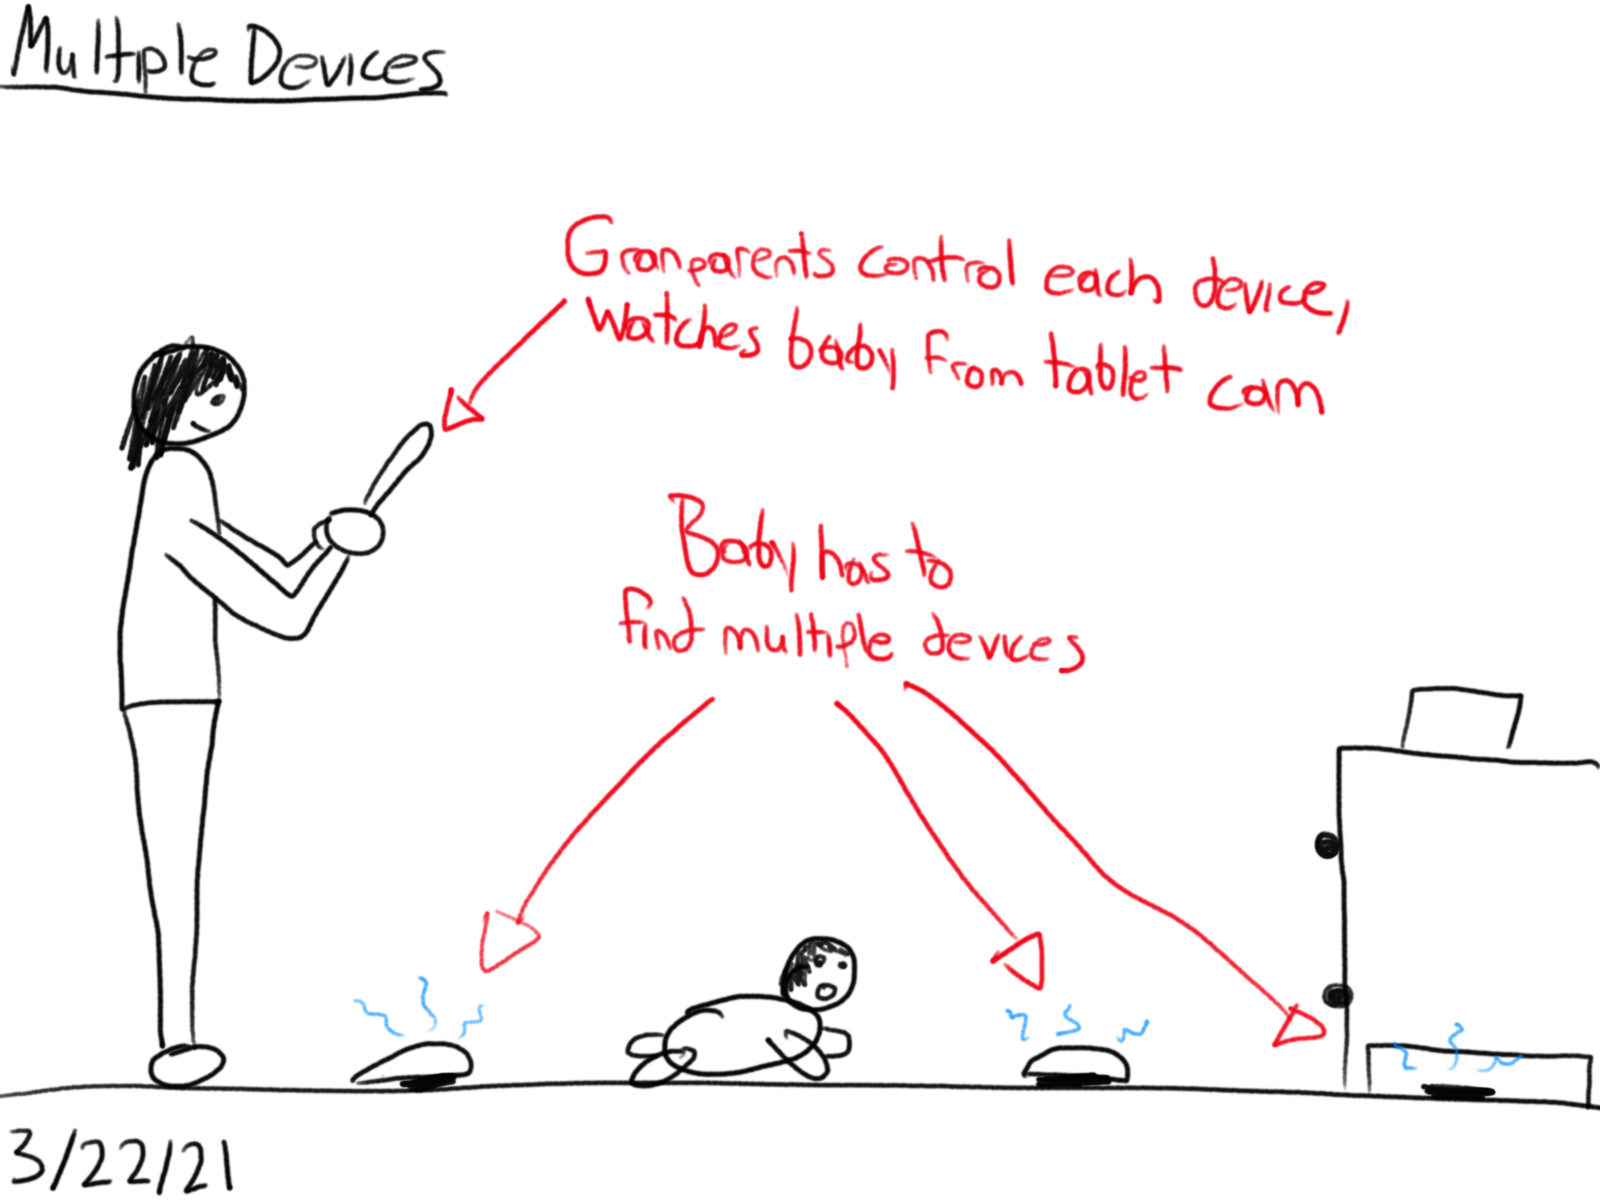 Multiple Devices
Granparents control each device,
Watches baby from tablet cam
Baby has to
find multiple devices
3/22/21